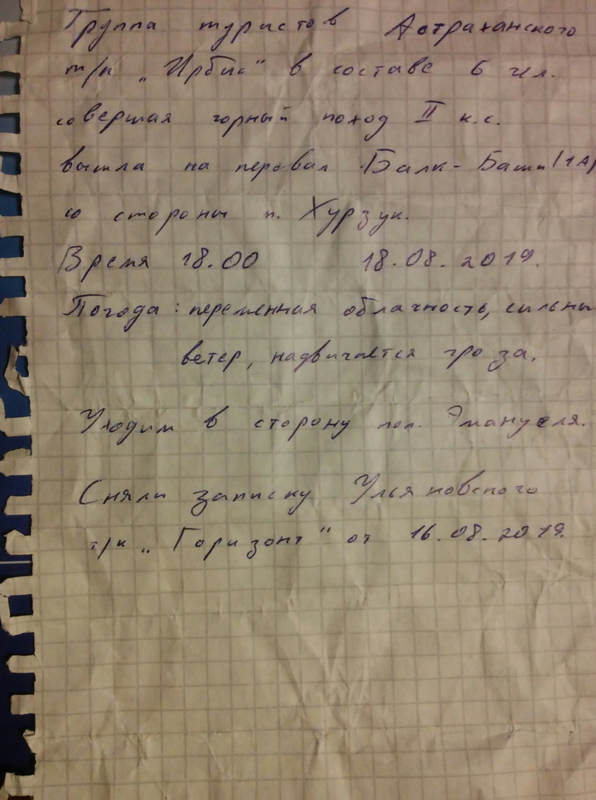 Группа туристов Астраханского
т/к „Ирбис" в составе 6 чел.
совершая горный поход II к.с.
вышла на перевал Балк-Баши (1А)
со стороны п. Хурзук.
Время 18.00 18.08.2019.
Погода: переменная облачность, сильны
ветер, надвигается гроза.
Уходим в сторону пол. Эмануеля.
Сняли записку Ульяновского
т/к „Горизонт" от 16.08.2019.